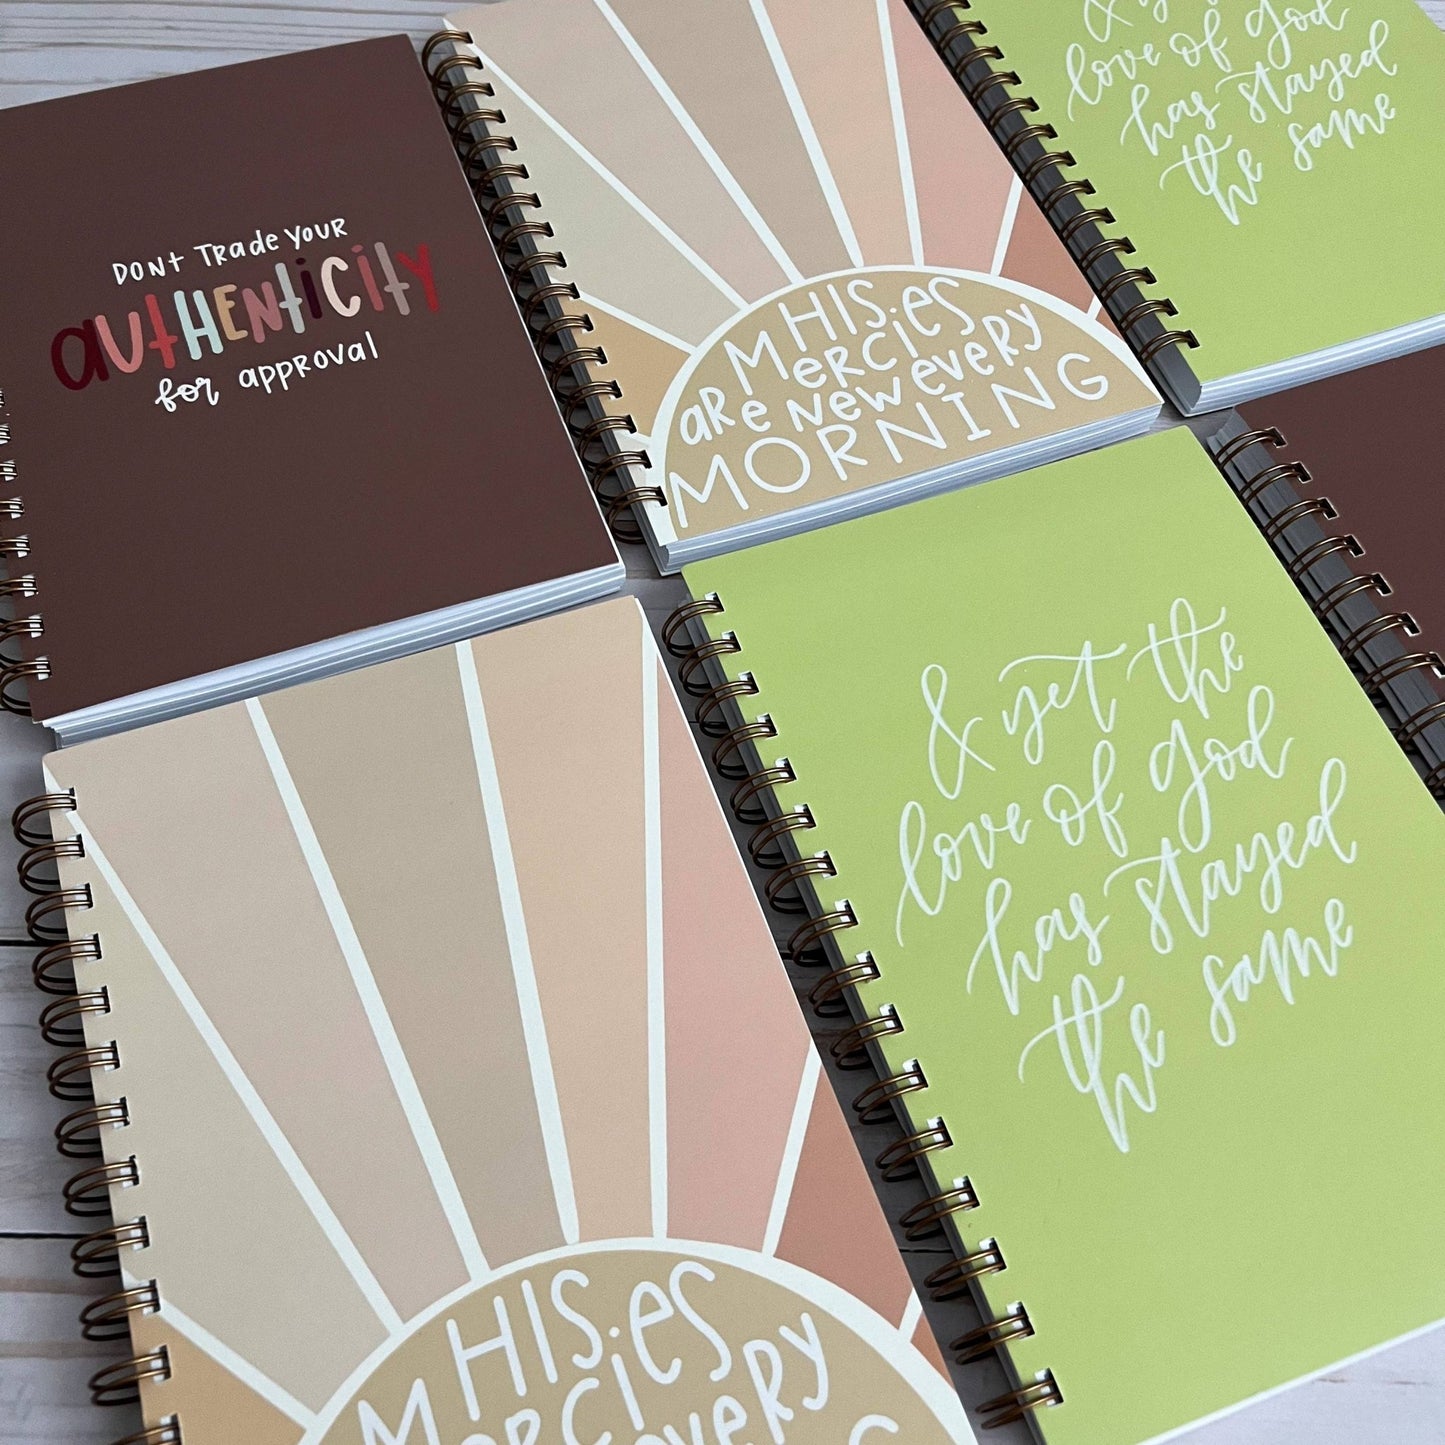 DONT TRADE YOUR
AUTHENTICITY
for APPROVAL
HIS
MERCIES
ARE NEW EVERY
MORNING
& yet the
love of God
has stayed
the same
& yet the
love of God
has stayed
the same
HIS
MERCIES
EVERY